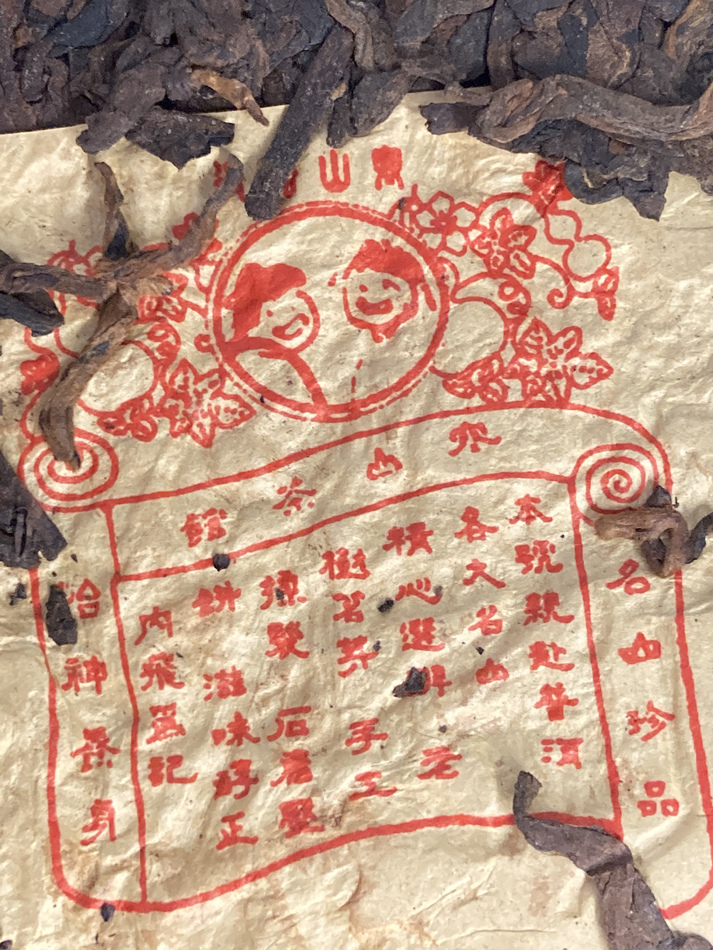 寒山
寒山茶館
名山珍品
本號親赴普洱
各大名山
精心選擇 老
樹茗芽 手工
揉 石磨壓
餅 滋味醇正
內飛為記
怡神養身